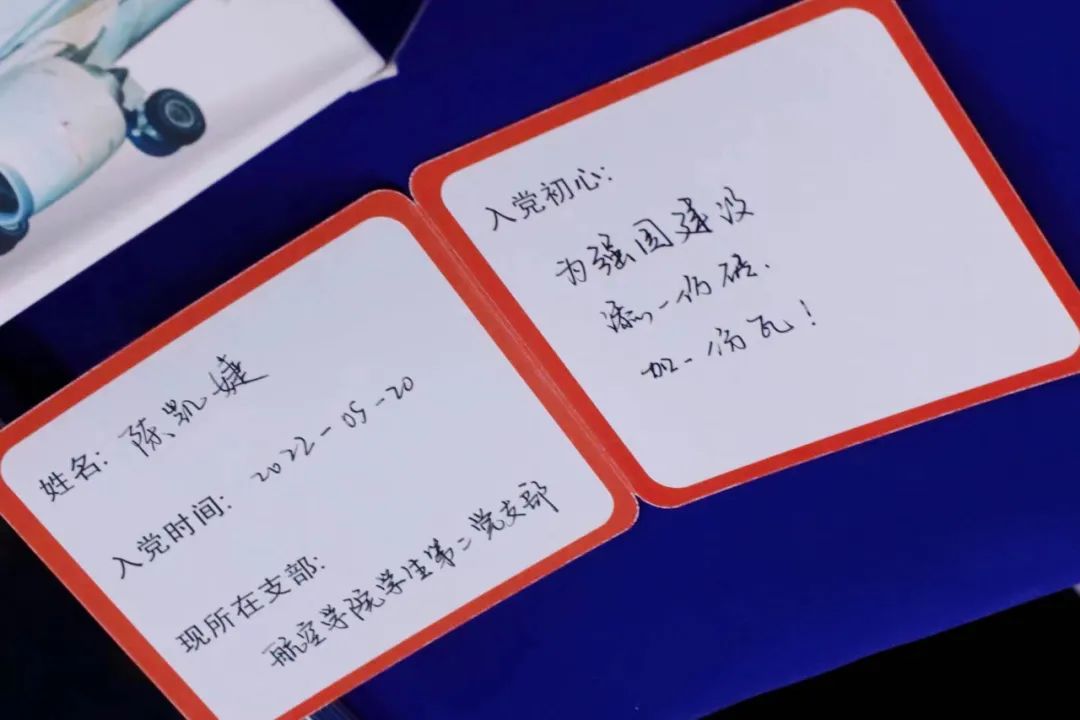 姓名: 陈凯婕
入党时间: 2022-05-20
现所在支部:
航空学院学生第二党支部
入党初心:
为强国建设
添一份砖.
加一份瓦!